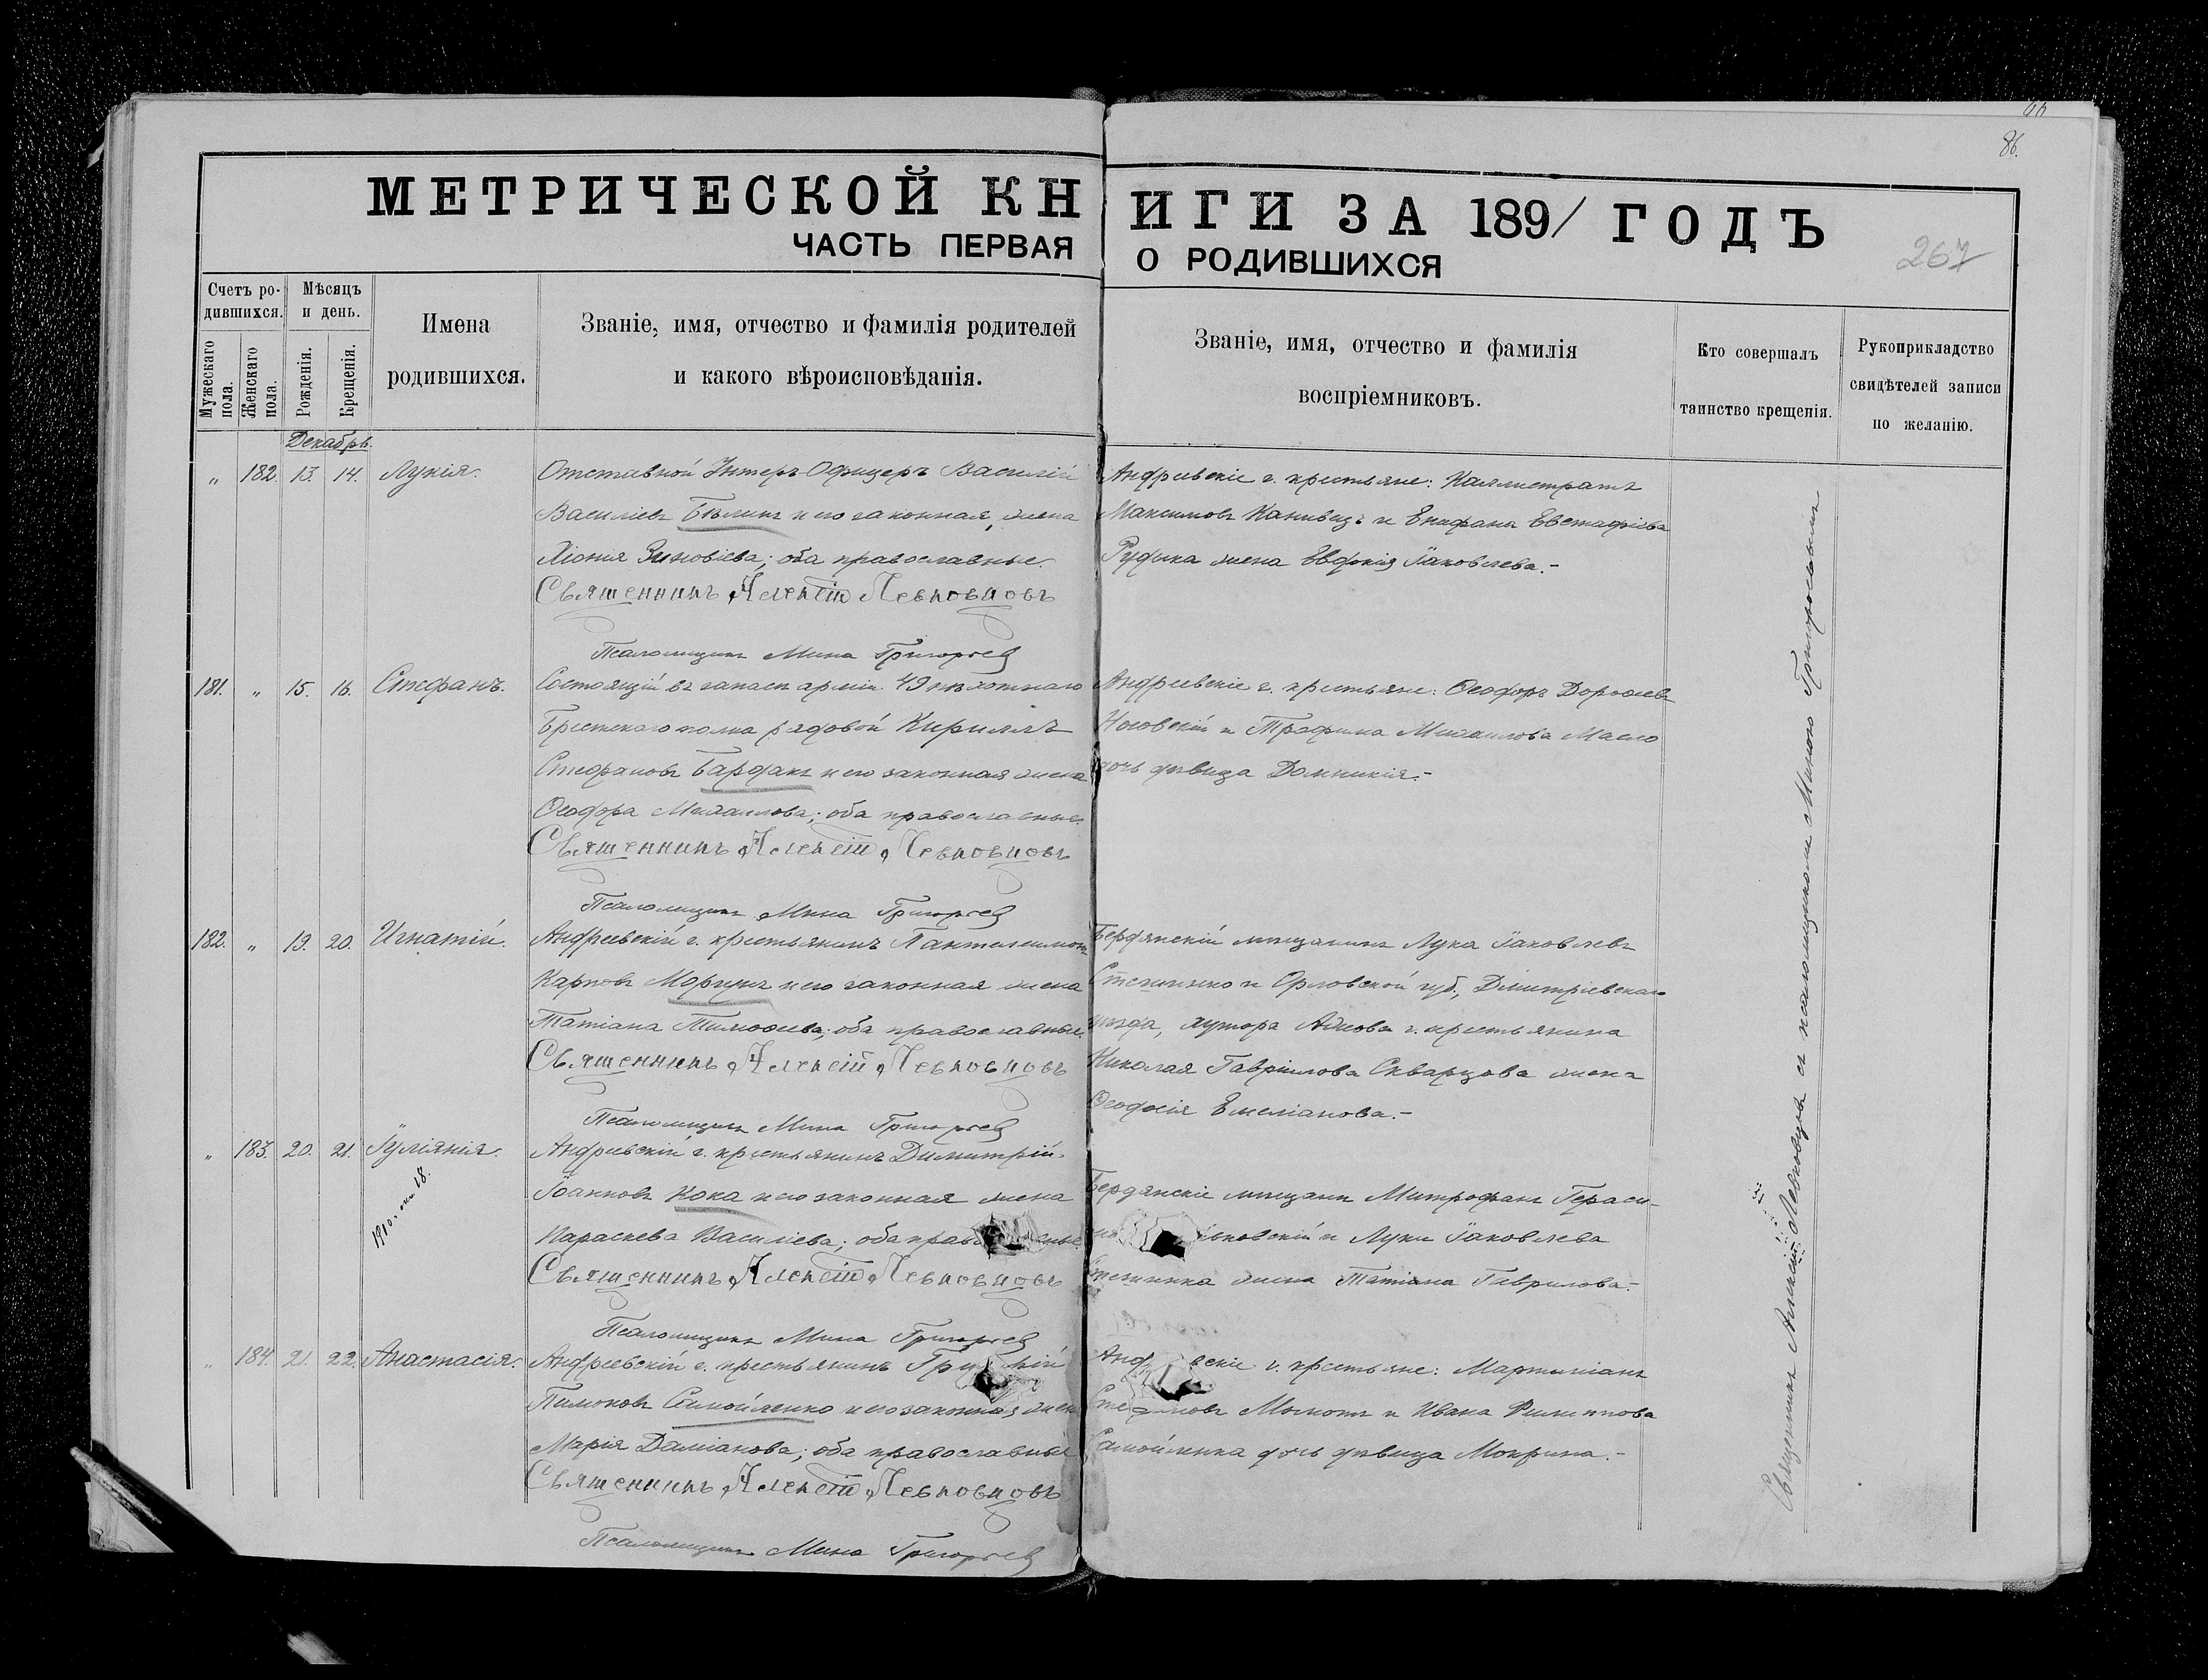 86.
МЕТРИЧЕСКОЙ КНИГИ ЗА 1891 ГОДЪ
ЧАСТЬ ПЕРВАЯ О РОДИВШИХСЯ
267
Счетъ родившихся.
Мужескаго пола.
Женскаго пола.
Мѣсяцъ и день.
Рожденія.
Крещенія.
Имена родившихся.
Званіе, имя, отчество и фамилія родителей
и какого вѣроисповѣданія.
Званіе, имя, отчество и фамилія
воспріемниковъ.
Кто совершалъ
таинство крещенія.
Рукоприкладство
свидѣтелей записи
по желанію.
Декабрь.
" 182. 13. 14. Лукія.
Отставной Унтеръ-Офицеръ Василій
Василіевъ Бѣлинъ и его законная жена
Хіонія Зиновіева; оба православные.
Священникъ Алексій Левковцовъ
Псаломщикъ Мина Григорьев
Андреевскіе г. крестьяне: Каллистратъ
Максимовъ Канивецъ и Епифана Евстафіева
Рудика жена Евдокія Іаковлева.-
181. " 15. 16. Стефанъ.
Состоящій въ запасѣ арміи 49 пѣхотнаго
Брестскаго полка рядовой Кириллъ
Стефановъ Бардакъ и его законная жена
Ѳеодора Михаилова; оба православные.
Священникъ Алексій Левковцовъ
Псаломщикъ Мина Григорьев
Андреевскіе г. крестьяне: Ѳеодоръ Дороѳеевъ
Носовскій и Трофима Михаилова Масло
дочь дѣвица Домникія.-
182. " 19. 20. Игнатій.
Андреевскій г. крестьянинъ Пантелеимонъ
Карповъ Моргунъ и его законная жена
Татіана Тимоѳеева; оба православные.
Священникъ Алексій Левковцовъ
Псаломщикъ Мина Григорьев
Бердянскій мѣщанинъ Лука Іаковлевъ
и Орловской губ., Дмитріевскаго
уѣзда, хутора г. крестьянина
Николая Гавріилова Скварцова жена
Ѳеодосія Емеліанова.-
" 183. 20. 21. Іуліанія.
1910. 18.
Андреевскій г. крестьянинъ Димитрій
Іоанновъ Кока и его законная жена
Параскева Василіева; оба
Священникъ Алексій Левковцовъ
Псаломщикъ Мина Григорьев
Бердянскіе мѣщане Митрофанъ Гераси-
и Луки Іаковлева
жена Татіана Гаврилова.-
" 184. 21. 22. Анастасія.
Андреевскій г. крестьянинъ
Пимоновъ Самойленко и его законная жена
Марія Даміанова; оба православные
Священникъ Алексій Левковцовъ
Псаломщикъ Мина Григорьев
г. крестьяне: Мартиніанъ
Момотъ и Ивана Филиппова
Самойленка дочь дѣвица Мокрина.-
Священникъ Алексій Левковцовъ съ псаломщикомъ Миною Григорьевымъ